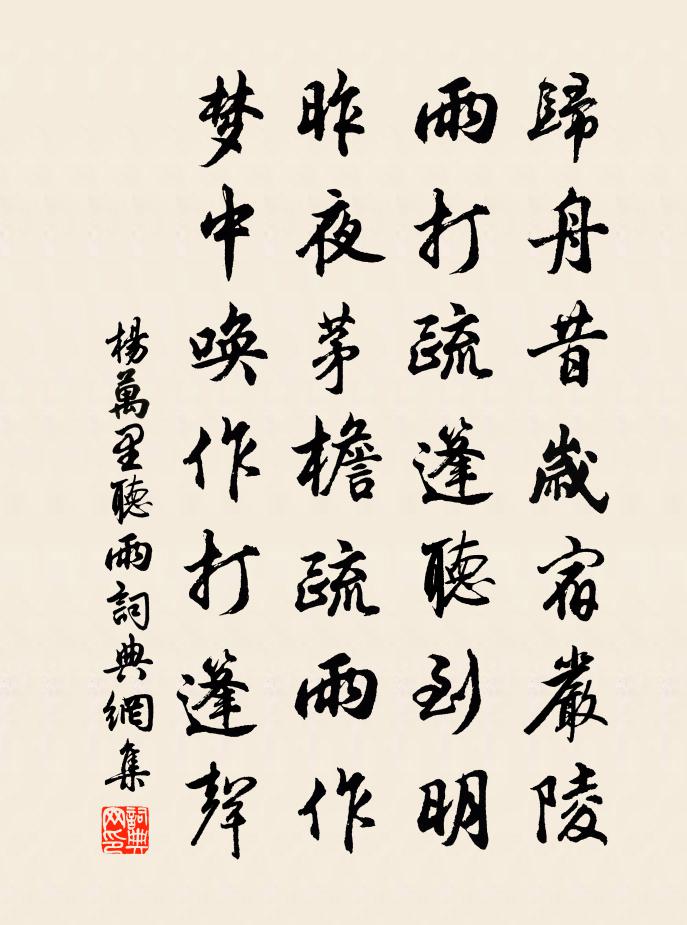 歸舟昔歲宿嚴陵
雨打疏蓬聽到明
昨夜茅檐疏雨作
梦中喚作打蓬聲
楊萬里聽雨詞典網集
詞典
网印